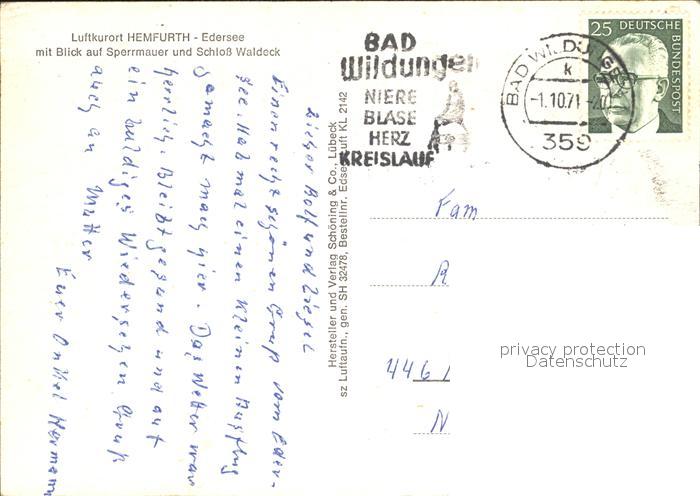 Luftkurort HEMFURTH - Edersee
mit Blick auf Sperrmauer und Schloß Waldeck
BAD
Wildungen
NIERE
BLASE
HERZ
KREISLAUF
BAD WILDUNGEN
k
-1.10.71-20
359
25 DEUTSCHE
BUNDESPOST
Lieber Rolf und Liesel
Einen recht schönen Gruß vom Eder-
see. Hab mal einen kleinen Ausflug
gemacht nach hier. Das Wetter war
herrlich. Bleibt gesund und auf
ein baldiges Wiedersehen. Gruß
auch an Mutter
Euer Onkel Hermann
Hersteller und Verlag Schöning & Co., Lübeck
sz Luftaufn., gen. SH 32478, Bestellnr. Edsee Luft KL 2142
Fam
R
446
N
privacy protection
Datenschutz